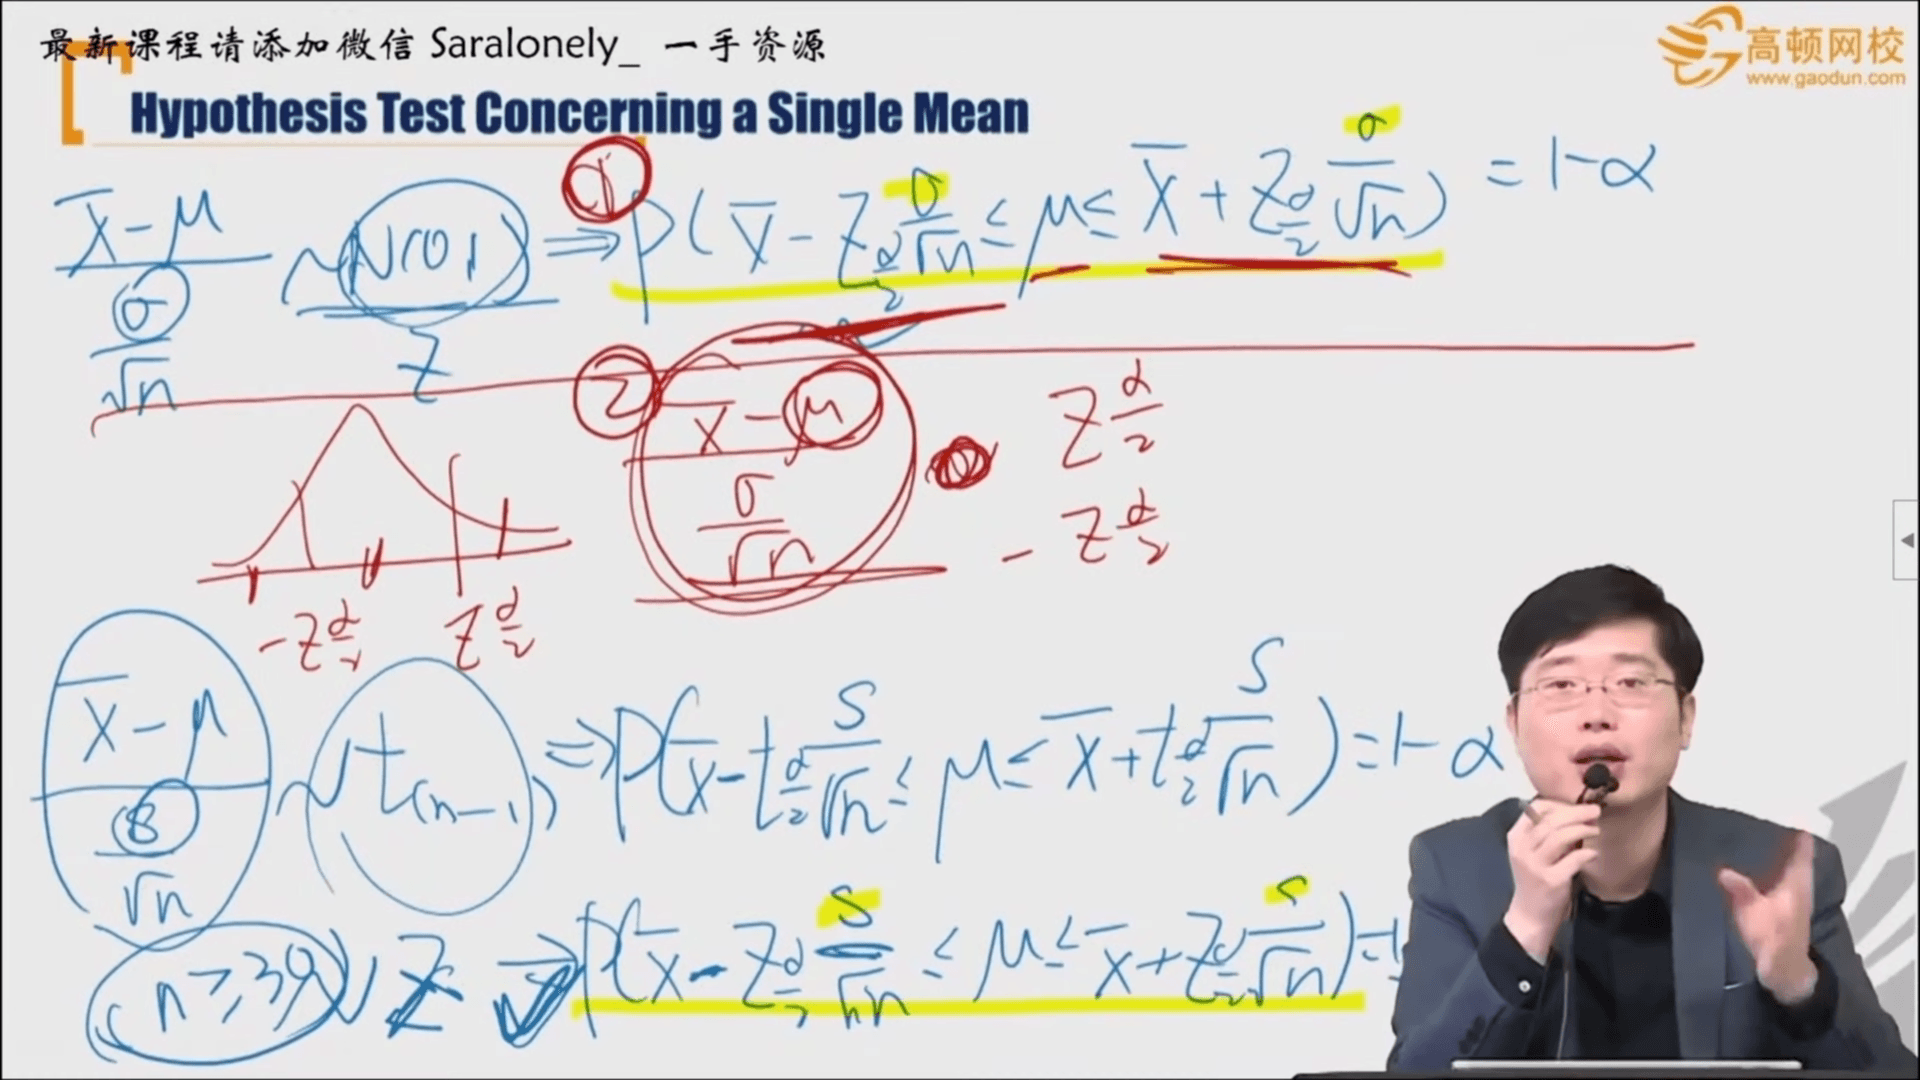 最新课程请添加微信 Saralonely_ 一手资源
高顿网校
www.gaodun.com
Hypothesis Test Concerning a Single Mean
(x̄ - μ) / (σ/√n) ~ N(0,1) ⇒ P(x̄ - Z α/2 σ/√n ≤ μ ≤ x̄ + Z α/2 σ/√n) = 1 - α
Z
①
② (x̄ - μ) / (σ/√n)
Z α/2
- Z α/2
-Z α/2
Z α/2
(x̄ - μ) / (S/√n) ~ t(n-1) ⇒ P(x̄ - t α/2 S/√n ≤ μ ≤ x̄ + t α/2 S/√n) = 1 - α
Z ⇒ P(x̄ - Z α/2 S/√n ≤ μ ≤ x̄ + Z α/2 S/√n) = 1